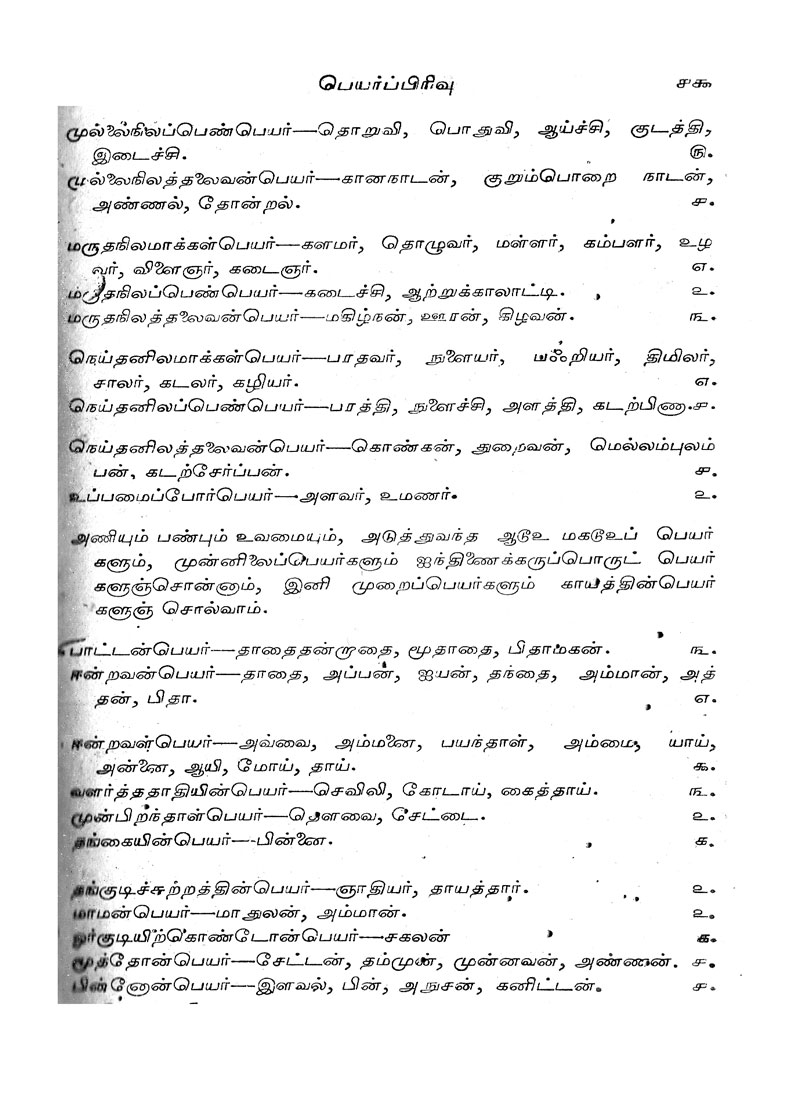 பெயர்ப்பிரிவு ௪௯
முல்லைநிலப்பெண்பெயர்—தொறுவி, பொதுவி, ஆய்ச்சி, குடத்தி,
இடைச்சி. ௫.
முல்லைநிலத்தலைவன்பெயர்—கானநாடன், குறும்பொறை நாடன்,
அண்ணல், தோன்றல். ௪.
மருதநிலமாக்கள்பெயர்—களமர், தொழுவர், மள்ளர், கம்பளர், உழ
வர், விளைஞர், கடைஞர். ௭.
மருதநிலப்பெண்பெயர்—கடைச்சி, ஆற்றுக்காலாட்டி. ௨.
மருதநிலத்தலைவன்பெயர்—மகிழ்நன், ஊரன், கிழவன். ௩.
நெய்தனிலமாக்கள்பெயர்—பரதவர், நுளையர், பஃறியர், திமிலர்,
சாலர், கடலர், கழியர். ௭.
நெய்தனிலப்பெண்பெயர்—பரத்தி, நுளைச்சி, அளத்தி, கடற்பிணா.௪.
நெய்தனிலத்தலைவன்பெயர்—கொண்கன், துறைவன், மெல்லம்புலம்
பன், கடற்சேர்ப்பன். ௪.
உப்பமைப்போர்பெயர்—அளவர், உமணர். ௨.
அணியும் பண்பும் உவமையும், அடுத்துவந்த ஆடூஉ மகடூஉப் பெயர்
களும், முன்னிலைப்பெயர்களும் ஐந்திணைக்கருப்பொருட் பெயர்
களுஞ்சொன்னாம், இனி முறைப்பெயர்களும் காயத்தின்பெயர்
களுஞ் சொல்வாம்.
பாட்டன்பெயர்—தாதைதன்றாதை, மூதாதை, பிதாமகன். ௩.
ஈன்றவன்பெயர்—தாதை, அப்பன், ஐயன், தந்தை, அம்மான், அத்
தன், பிதா. ௭.
ஈன்றவள்பெயர்—அவ்வை, அம்மனை, பயந்தாள், அம்மை, யாய்,
அன்னை, ஆயி, மோய், தாய். ௯.
வளர்த்ததாதியின்பெயர்—செவிலி, கோடாய், கைத்தாய். ௩.
முன்பிறந்தாள்பெயர்—தௌவை, சேட்டை. ௨.
தங்கையின்பெயர்—பின்னை. ௧.
தங்குடிச்சுற்றத்தின்பெயர்—ஞாதியர், தாயத்தார். ௨.
மாமன்பெயர்—மாதுலன், அம்மான். ௨.
ஓர்குடியிற்கொண்டோன்பெயர்—சகலன் ௧.
மூத்தோன்பெயர்—சேட்டன், தம்முன், முன்னவன், அண்ணன். ௪.
பின்னோன்பெயர்—இளவல், பின், அநுசன், கனிட்டன். ௪.